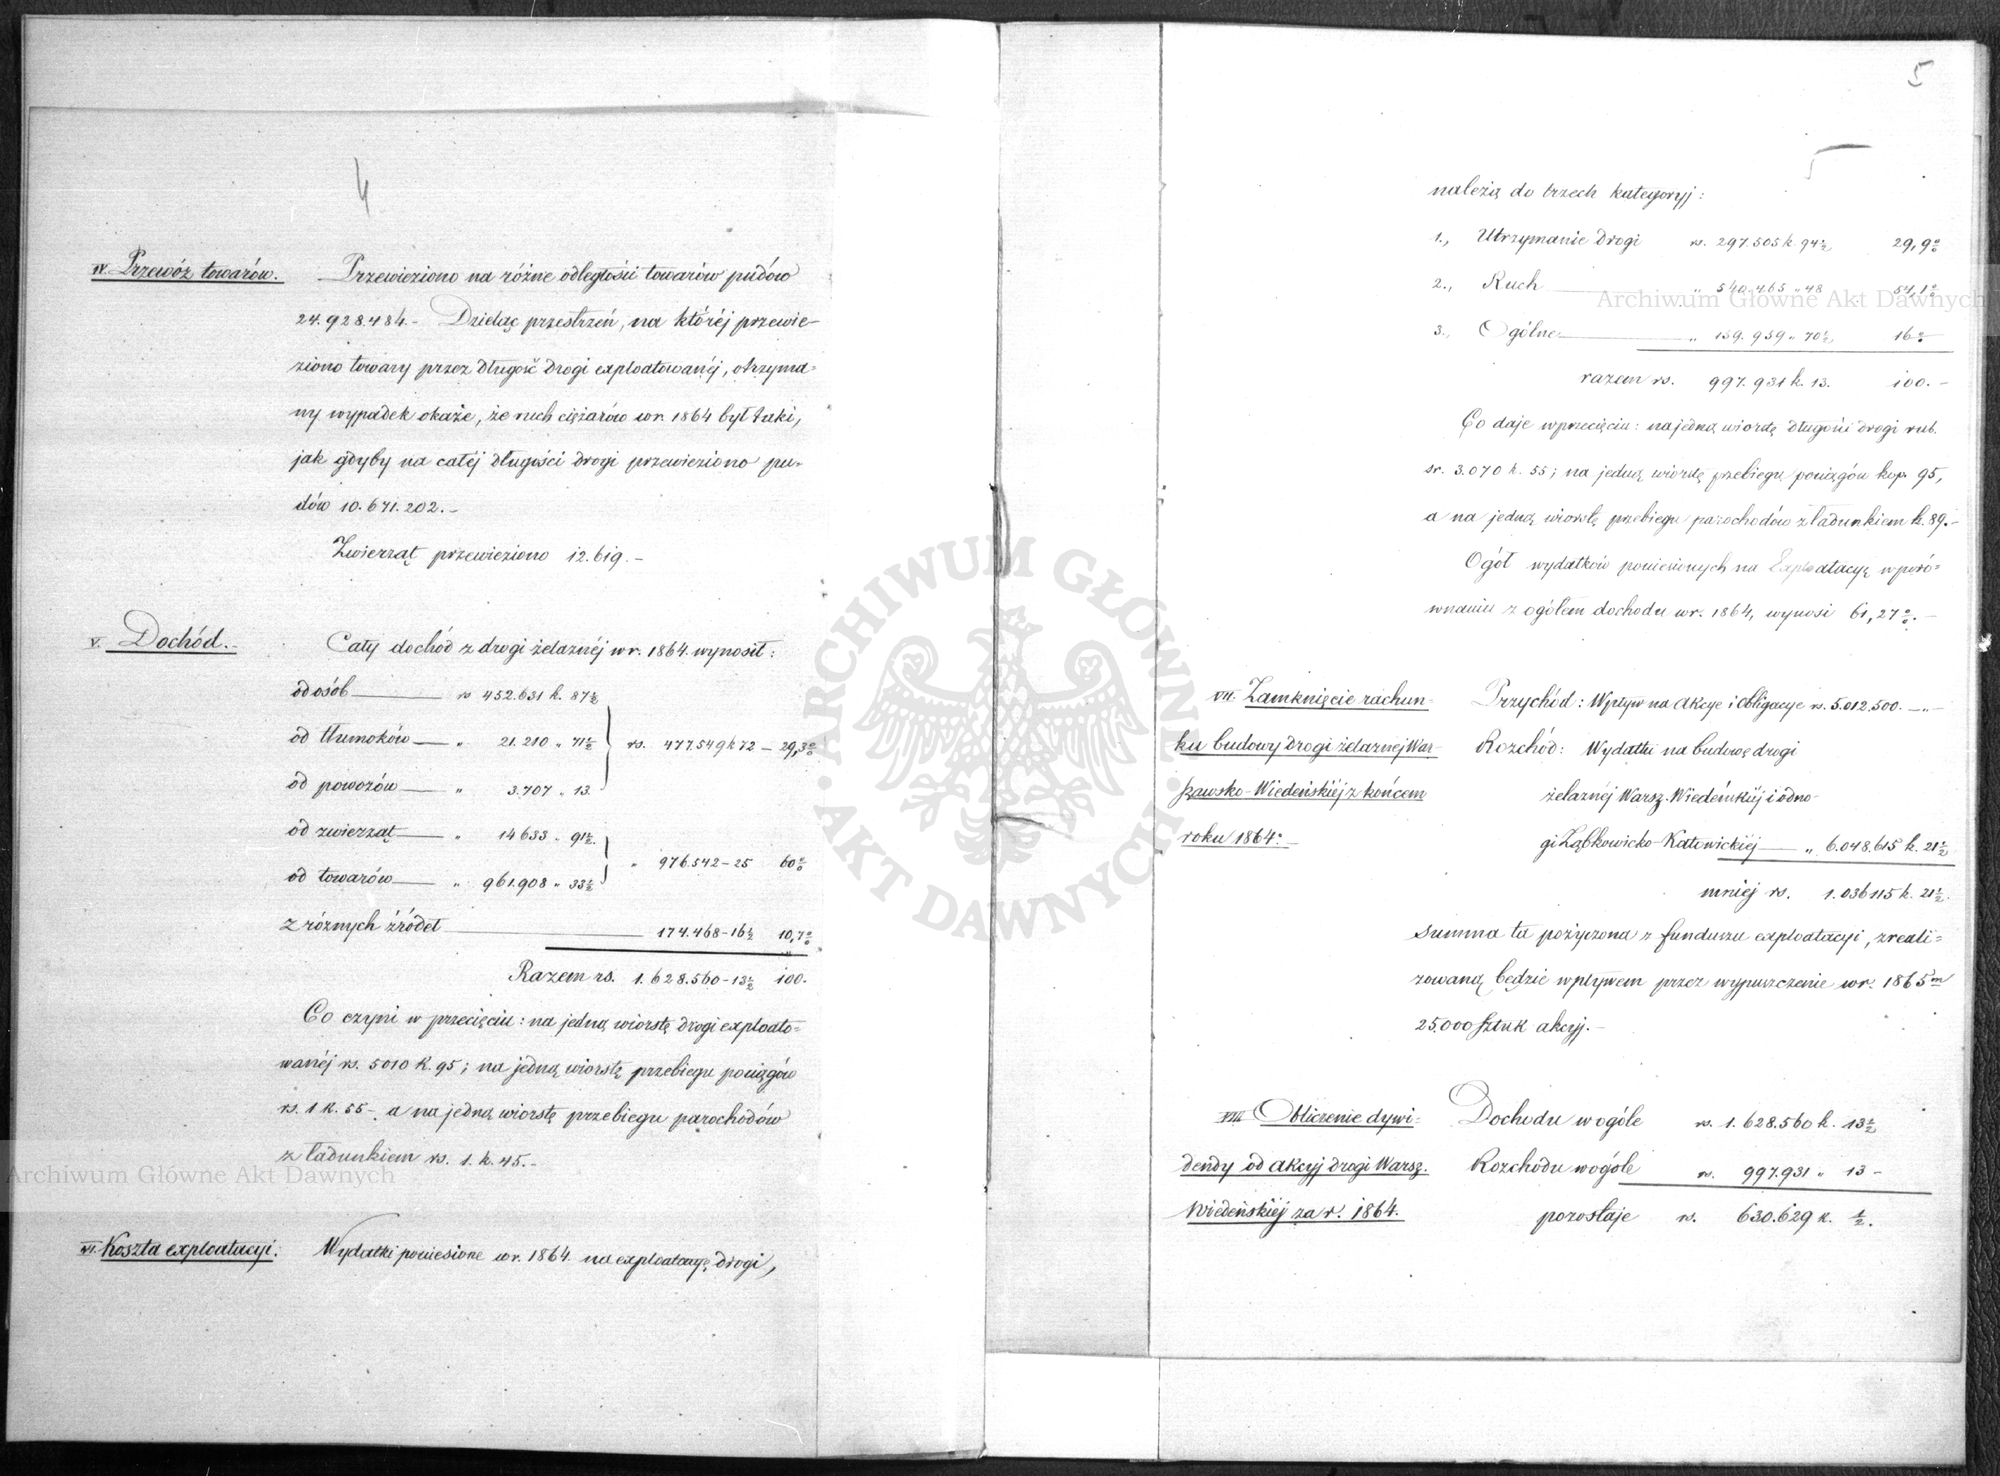 4
IV. Przewóz towarów. Przewieziono na różne odległości towarów pudów
24.928.484.- Dzieląc przestrzeń, na któréj przewie-
ziono towary przez długość drogi exploatowanéj, otrzyma-
ny wypadek okaże, że ruch ciężarów w r. 1864 był taki,
jak gdyby na całéj długości drogi przewieziono pu-
dów 10.671.202.-
Zwierząt przewieziono 12.619.-
V. Dochód. Cały dochód z drogi żelaznéj w r. 1864. wynosił:
od osób — rs 452.631 k. 87½
od tłumoków — „ 21.210 „ 71½ rs. 477.549 k 72 — 29,3%
od powozów — „ 3.707 „ 13.
od zwierząt — „ 14633 „ 91½
od towarów — „ 961.908 „ 33½ „ 976.542-25 60%
z różnych źródeł — 174.468-16½ 10,7%
Razem rs. 1.628.560-13½ 100.
Co czyni w przecięciu: na jedną wiorstę drogi exploato-
wanéj rs. 5010 k. 95; na jedną wiorstę przebiegu pociągów
rs. 1 k. 55-, a na jedną wiorstę przebiegu parochodów
z ładunkiem rs. 1. k. 45.-
VI. Koszta exploatacyi. Wydatki poniesione w r. 1864. na exploatacyę drogi,
5
5
należą do trzech kategoryj:
1., Utrzymanie drogi rs. 297.505 k. 94½ 29,9%
2., Ruch — „ 540.465 „ 48 54,1%
3., Ogólne — „ 159.959 „ 70½ 16%
razem rs. 997.931 k. 13. 100.-
Co daje w przecięciu: na jedną wiorstę długości drogi rub.
sr. 3.070 k. 55; na jedną wiorstę przebiegu pociągów kop. 95,
a na jedną wiorstę przebiegu parochodów z ładunkiem k. 89.-
Ogół wydatków poniesionych na Exploatacyę w poró-
wnaniu z ogółem dochodu w r. 1864, wynosi 61,27%.-
VII. Zamknięcie rachun- Przychód: Wpływ na Akcye i Obligacye rs. 5.012.500.—„-
ku budowy drogi żelaznej War- Rozchód: Wydatki na budowę drogi
szawsko-Wiedeńskiéj z końcem żelaznéj Warsz. Wiedeńskiéj i odno-
roku 1864.- gi Ząbkowicko-Katowickiéj — „ 6.048.615 k. 21½
mniej rs. 1.036115 k. 21½.
Summa ta pożyczona z funduszu exploatacyi, zreali-
zowaną będzie wpływem przez wypuszczenie w r. 1865m
25.000 sztuk akcyj.-
VIII Obliczenie dywi- Dochodu w ogóle rs. 1.628.560 k. 13½
dendy od akcyj drogi Warsz. Rozchodu w ogóle rs. 997.931 „ 13-
Wiedeńskiéj za r. 1864. pozostaje rs. 630.629 k. ½.
ARCHIWUM GŁÓWNE AKT DAWNYCH
Archiwum Główne Akt Dawnych
Archiwum Główne Akt Dawnych